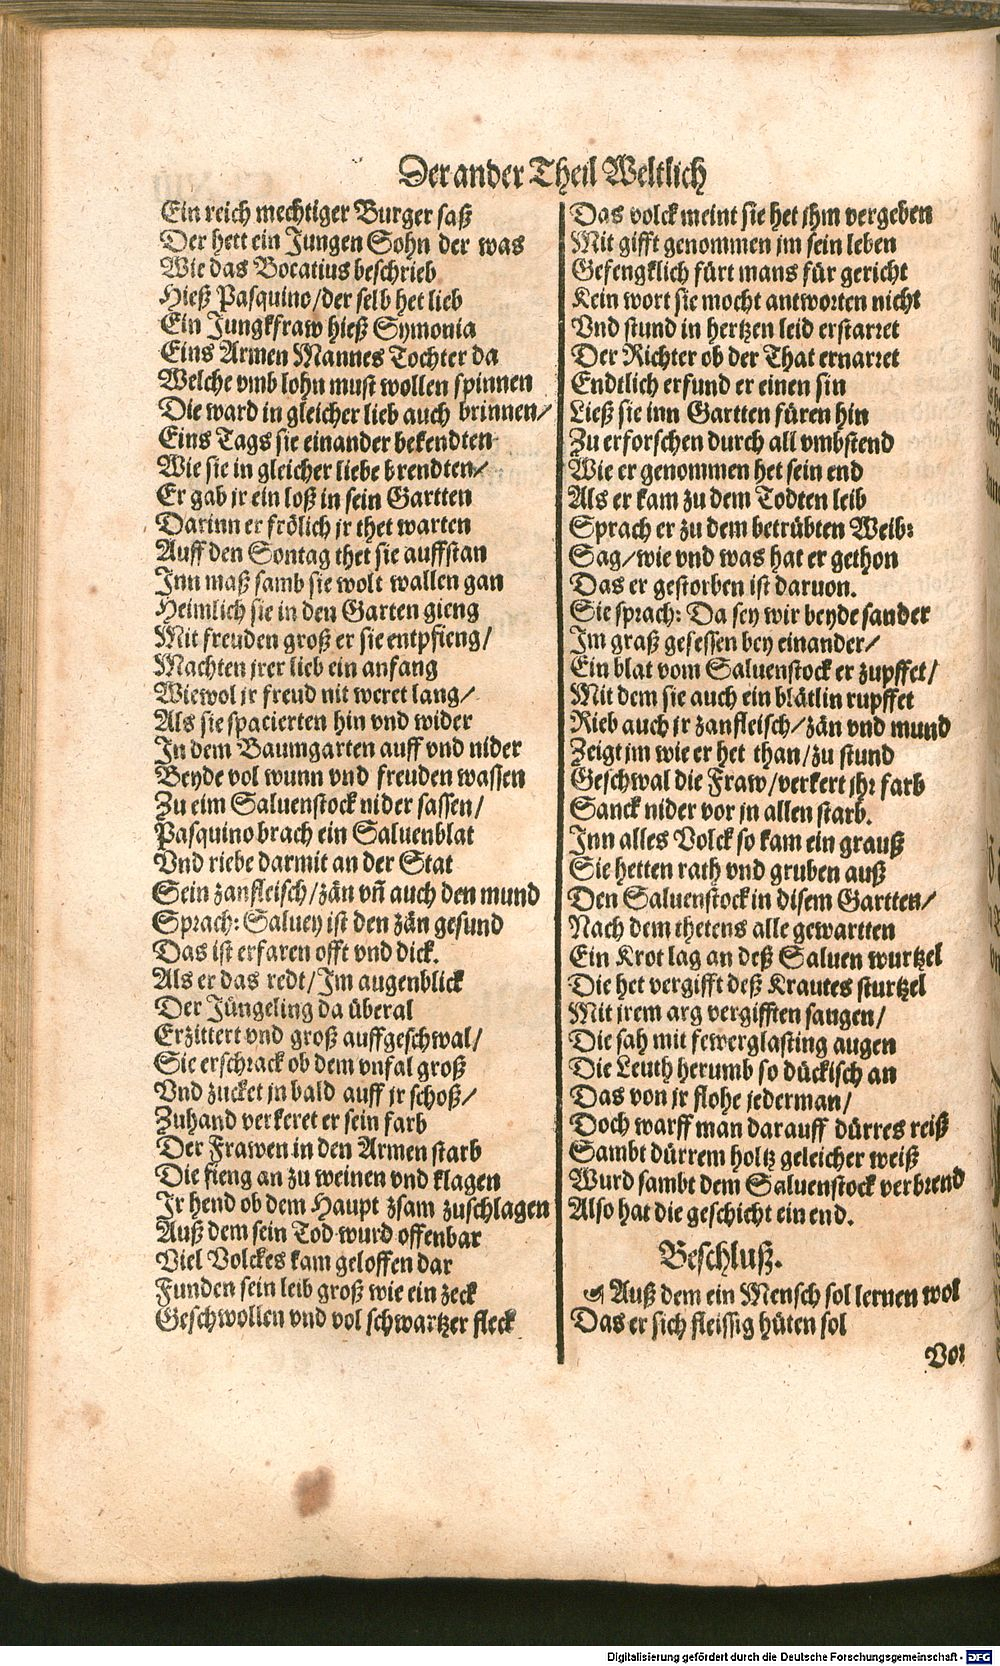 Der ander Theil Weltlich
Ein reich mechtiger Burger saß
Der hett ein Jungen Sohn der was
Wie das Bocatius beschrieb
Hieß Pasquino/der selb het lieb
Ein Jungkfraw hieß Symonia
Eins Armen Mannes Tochter da
Welche vmb lohn must wollen spinnen
Die ward in gleicher lieb auch brinnen/
Eins Tags sie einander bekendten
Wie sie in gleicher liebe brendten/
Er gab jr ein loß in sein Gartten
Darinn er frölich jr thet warten
Auff den Sontag thet sie auffstan
Inn maß samb sie wolt wallen gan
Heimlich sie in den Garten gieng
Mit freuden groß er sie entpfieng/
Machten jrer lieb ein anfang
Wiewol jr freud nit weret lang/
Als sie spacierten hin vnd wider
In dem Baumgarten auff vnd nider
Beyde vol wunn vnd freuden wassen
Zu eim Saluenstock nider sassen/
Pasquino brach ein Saluenblat
Vnd riebe darmit an der Stat
Sein zanfleisch/zän vñ auch den mund
Sprach: Saluey ist den zän gesund
Das ist erfaren offt vnd dick.
Als er das redt/Im augenblick
Der Jüngeling da überal
Erzittert vnd groß auffgeschwal/
Sie erschrack ob dem vnfal groß
Vnd zucket jn bald auff jr schoß/
Zuhand verkeret er sein farb
Der Frawen in den Armen starb
Die fieng an zu weinen vnd klagen
Ir hend ob dem Haupt zsam zuschlagen
Auß dem sein Tod wurd offenbar
Viel Volckes kam geloffen dar
Funden sein leib groß wie ein zeck
Geschwollen vnd vol schwartzer fleck
Das volck meint sie het jhm vergeben
Mit gifft genommen jm sein leben
Gefengklich fürt mans für gericht
Kein wort sie mocht antworten nicht
Vnd stund in hertzen leid erstarret
Der Richter ob der That ernarret
Endtlich erfund er einen sin
Ließ sie inn Gartten füren hin
Zu erforschen durch all vmbstend
Wie er genommen het sein end
Als er kam zu dem Todten leib
Sprach er zu dem betrübten Weib:
Sag/wie vnd was hat er gethon
Das er gestorben ist daruon.
Sie sprach: Da sey wir beyde sander
Im graß gesessen bey einander/
Ein blat vom Saluenstock er zupffet/
Mit dem sie auch ein blätlin rupffet
Rieb auch jr zanfleisch/zän vnd mund
Zeigt jm wie er het than/zu stund
Geschwal die Fraw/verkert jhr farb
Sanck nider vor jn allen starb.
Inn alles Volck so kam ein grauß
Sie hetten rath vnd gruben auß
Den Saluenstock in disem Gartten/
Nach dem thetens alle gewartten
Ein Krot lag an deß Saluen wurtzel
Die het vergifft deß Krautes sturtzel
Mit jrem arg vergifften saugen/
Die sah mit fewerglasting augen
Die Leuth herumb so dückisch an
Das von jr flohe jederman/
Doch warff man darauff dürres reiß
Sambt dürrem holtz geleicher weiß
Wurd sambt dem Saluenstock verbrend
Also hat die geschicht ein end.
Beschluß.
Auß dem ein Mensch sol lernen wol
Das er sich fleissig hüten sol
Vor
Digitalisierung gefördert durch die Deutsche Forschungsgemeinschaft - DFG